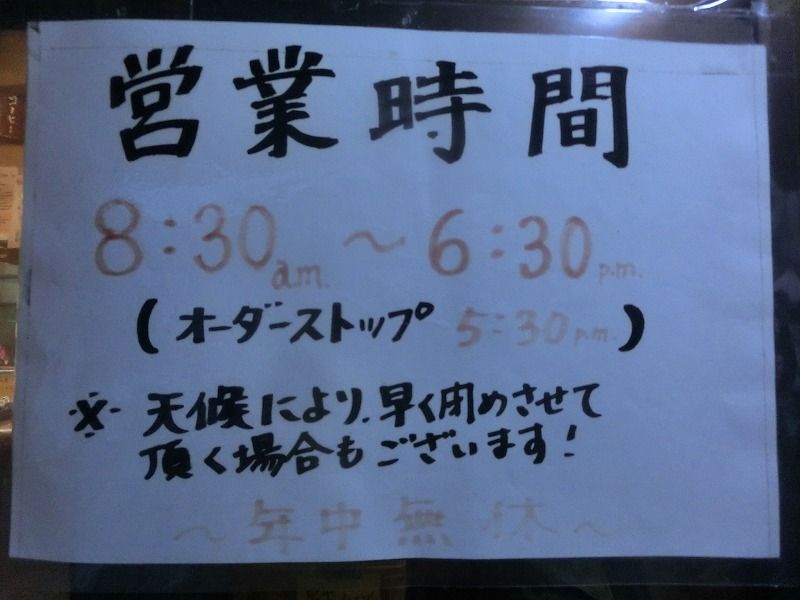 営業時間
8:30 a.m. 〜 6:30 p.m.
( オーダーストップ 5:30 p.m. )
※ 天候により、早く閉めさせて
頂く場合もございます!
〜 年中無休 〜
コーヒー